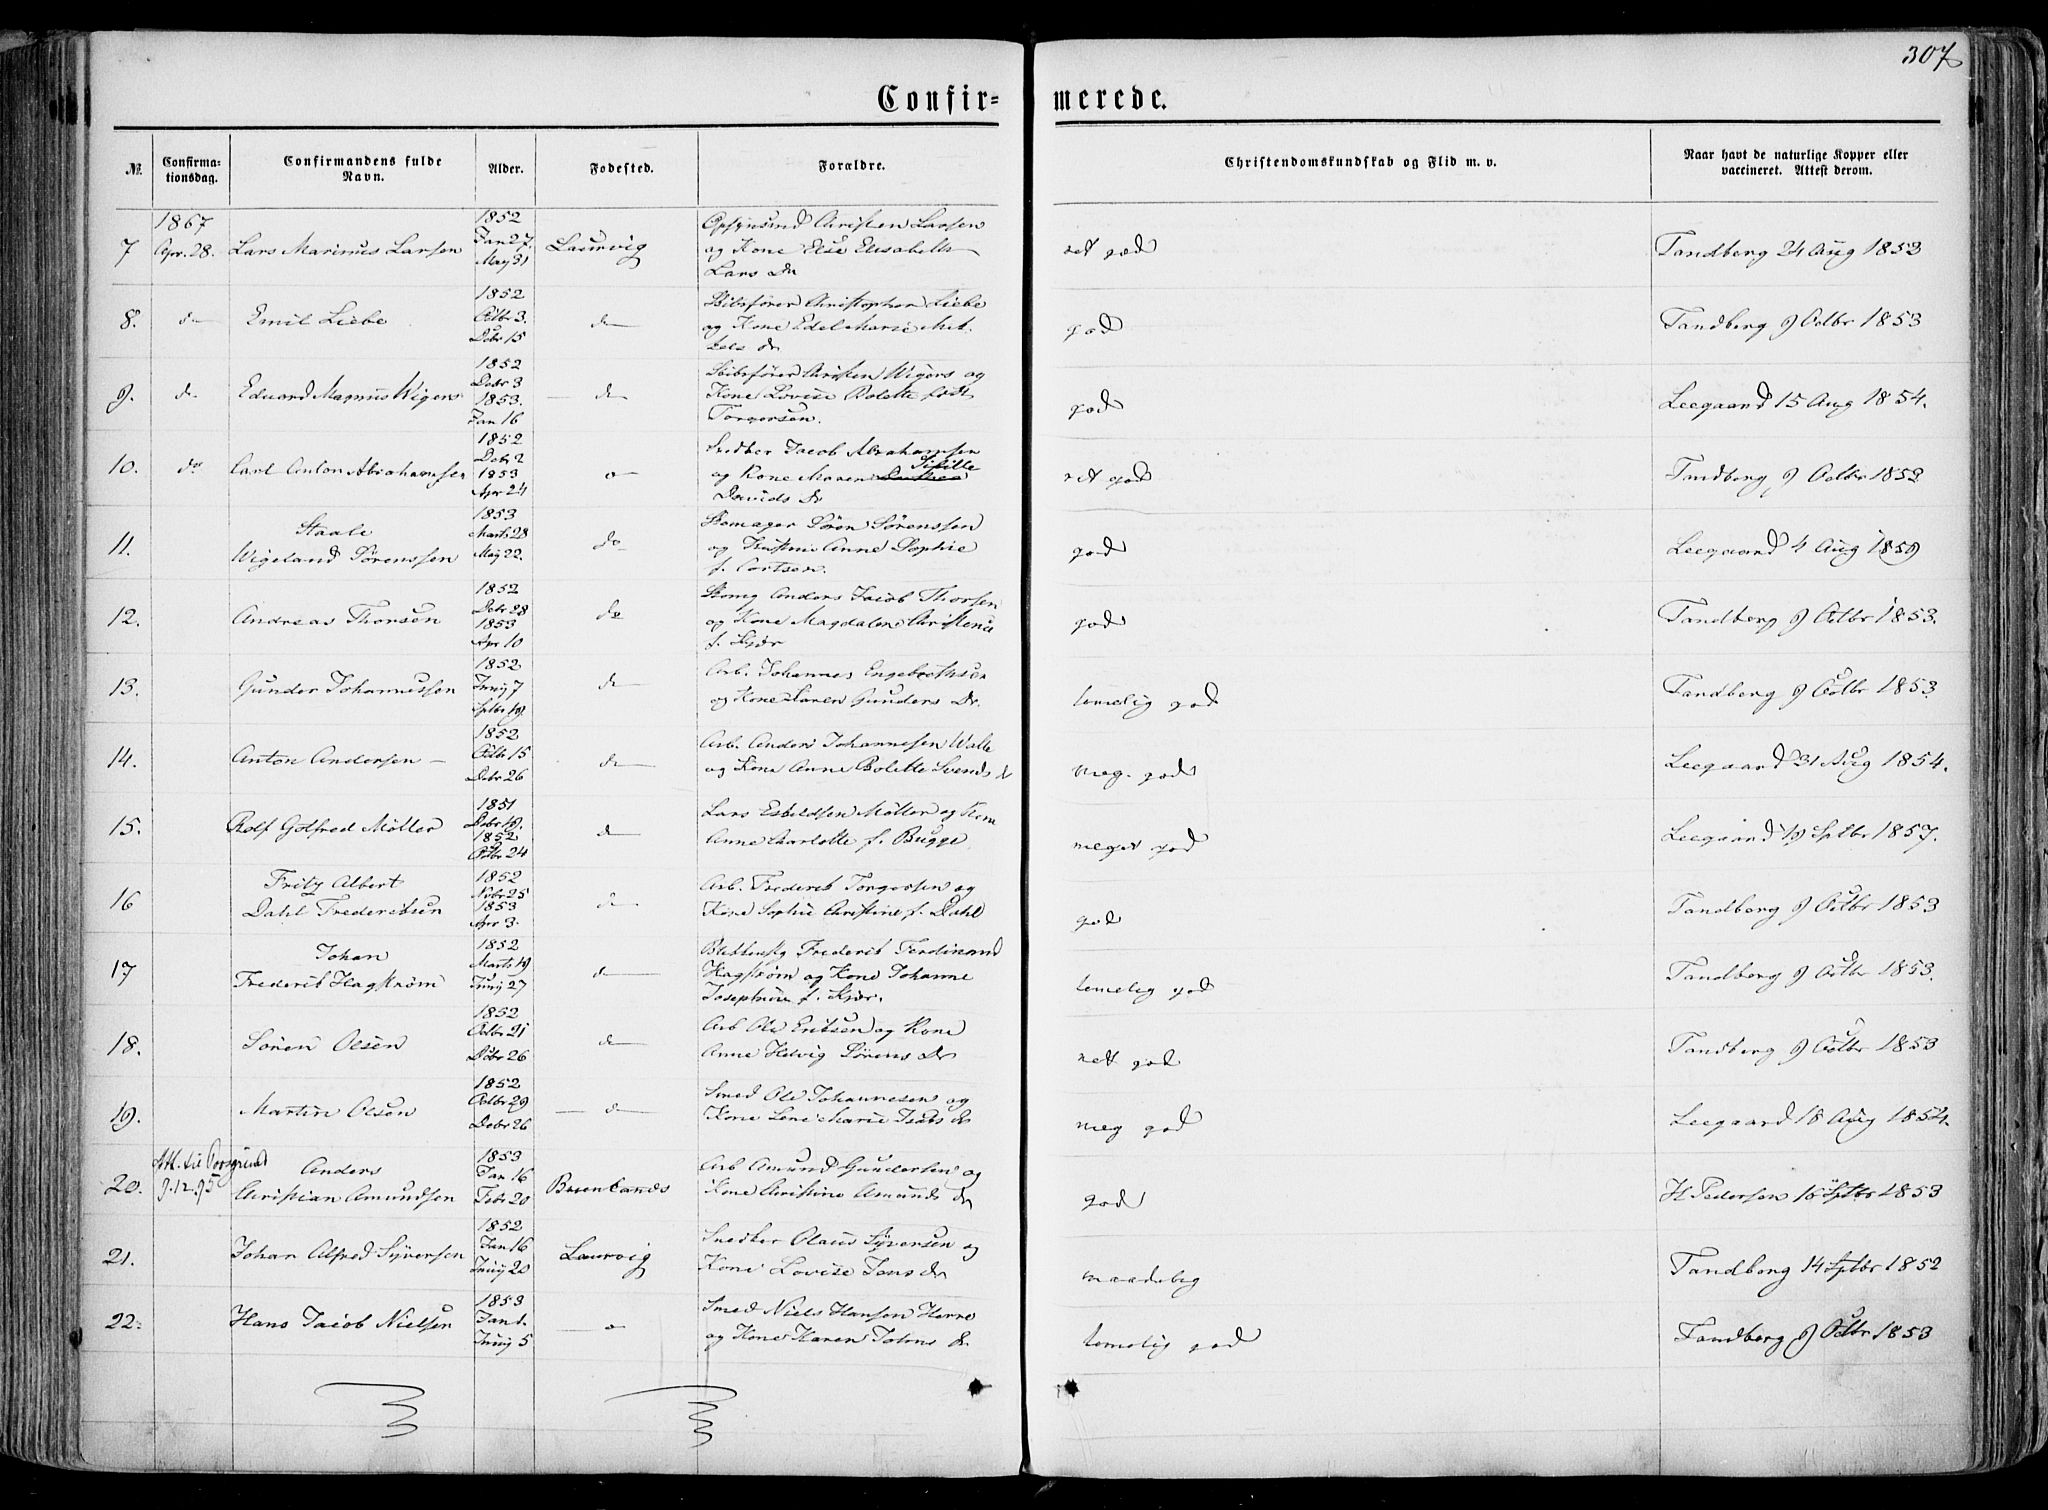 307
Confir-
merede.
№. Confirma-tionsdag. Confirmandens fulde Navn. Alder. Fodested. Forældre. Christendomskundskab og Flid m. v. Naar havt de naturlige Kopper eller vaccineret. Attest derom.
1867 1852 Christen Larsen
7 Apr. 28. Lars Marinus Larsen Jan 27. Laurvig og Kone Else Elisabeth ret god Tandberg 24 Aug 1853
May 31 Lars Dr
1852 Skibsfører Christopher Liebe
8. do Emil Liebe Octbr 3. do og Kone Edel Marie god Tandberg 9 Octbr 1853
Debr 15 dr
1852 Skibsfører Christen Wigers og
9. do Eduard Magnus Wigers Debr 3 do Kone Lovise Bolette født god Leegaard 15 Aug 1854.
1853. Jan 16 Torgersen.
1852 Snedker Jacob Abrahamsen
10. do Carl Anton Abrahamsen Debr 2 1853 o og Kone Maren Sisille ret god Tandberg 9 Octbr 1853
Apr 24 Davids Dr
1853 Skomager Søren Sørenssen
11. Staale Wigeland Sørenssen Marts 28 do og Anne Sophie god Leegaard 4 Aug 1859
May 22. f. Cortsen.
1852 Skomg Anders Jacob Thorsen
12. Andreas Thorsen Debr 28 1853 do og Kone Magdalene Christense god Tandberg 9 Octbr 1853.
Apr 10 f. Kjær
1852 Arb. Johannes Engebrethsen
13. Gunder Johannessen Juny 7 do og Kone Maren Gunders Dr. temelig god Tandberg 9 Octbr 1853.
Sptbr 19.
1852 Arb. Anders Johannesen Walle
14. Anton Andersen Octbr 15 do og Kone Anne Bolette Svends d meg. god Leegaard 31 Aug 1854.
Debr 26
1851 Lars Esbildsen Møller og Kone
15. Rolf Gotfred Møller Debr 19. 1852 do Anne Charlotte f. Bugge. meget god Leegaard 19 Sptbr 1857.
Octbr 24
Fritz Albert 1852 Arb. Frederik Torgersen og
16 Dahl Frederiksen Nvbr 25 1853 do Kone Sophie Christine f. Dahl god Tandberg 9 Octbr 1853
Apr 3.
Johan 1852 Frederik Ferdinand
17 Frederik Hagstrøm Marts 19 do Hagstrøm og Kone Johanne temelig god Tandberg 9 Octbr 1853.
Juny 27 Josephine f. Kjær.
1852 Arb Ole Eriksen og Kone
18. Søren Olsen Octbr 21 do Anne Helvig Sørens Dr rett god Tandberg 9 Octbr 1853
Debr 26
1852 Smed Ole Johannesen og
19. Martin Olsen Octbr 29 do Kone Lene Marie Isaks dr meg god Leegaard 18 Aug 1854.
Debr 26
Att. til Porsgrund Anders 1853 Arb Amund Gundersen og
20. 9.12.95 Christian Amundsen Jan 16 Brunlands Kone Christine Amunds dr god H Pedersen 16 Sptbr 1853
Febr 20
1852 Snedker Olaus Syversen og
21. Johan Alfred Syversen Jan 16 Laurvig Kone Lovise Jens dr maadelig Tandberg 14 Sptbr 1852
Juny 20
1853 Smed Niels Hansen Herre
22. Hans Jacob Nielsen Jan 1. o og Kone Karen Johns dr. temelig god Tandberg 9 Octbr 1853
Juny 5